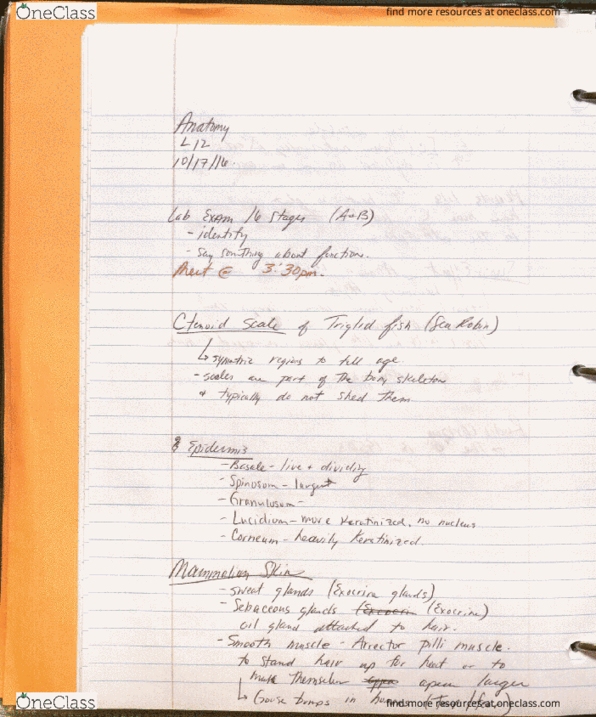 OneClass
find more resources at oneclass.com
Anatomy
L12
10/17/16
Lab Exam 16 stages (A+B)
- identify
- say something about function.
Meet @ 3:30pm.
Ctenoid Scale of Triglid fish (Sea Robin)
regions to tell age
- scales are part of the body skeleton
* typically do not shed them
Epidermis
- Basale - live + dividing
- Spinosum - largest
- Granulosum -
- Lucidium - more keratinized, no nucleus
- Corneum - heavily keratinized.
Mammalian Skin
- sweat glands (Exocrine glands)
- Sebaceous glands (Exocrine)
oil gland attached to hair.
- Smooth muscle - Arrector pilli muscle.
to stand hair up for heat or to
make themselves apear larger
Goose bumps in
OneClass
find more resources at oneclass.com